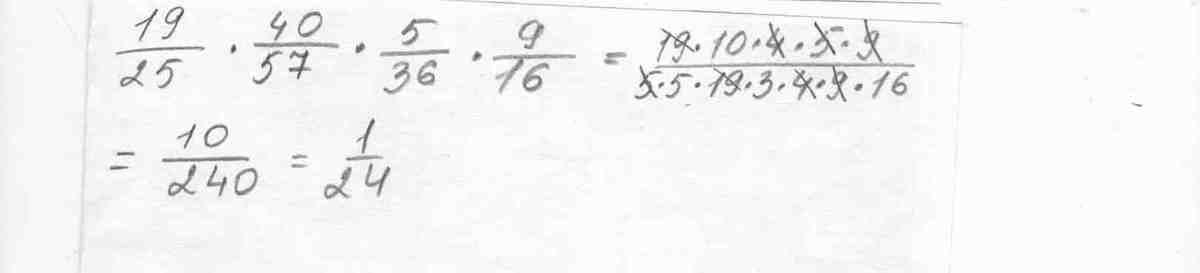 19/25 · 40/57 · 5/36 · 9/16 = 19·10·4·5·9/5·5·19·3·4·9·16
= 10/240 = 1/24